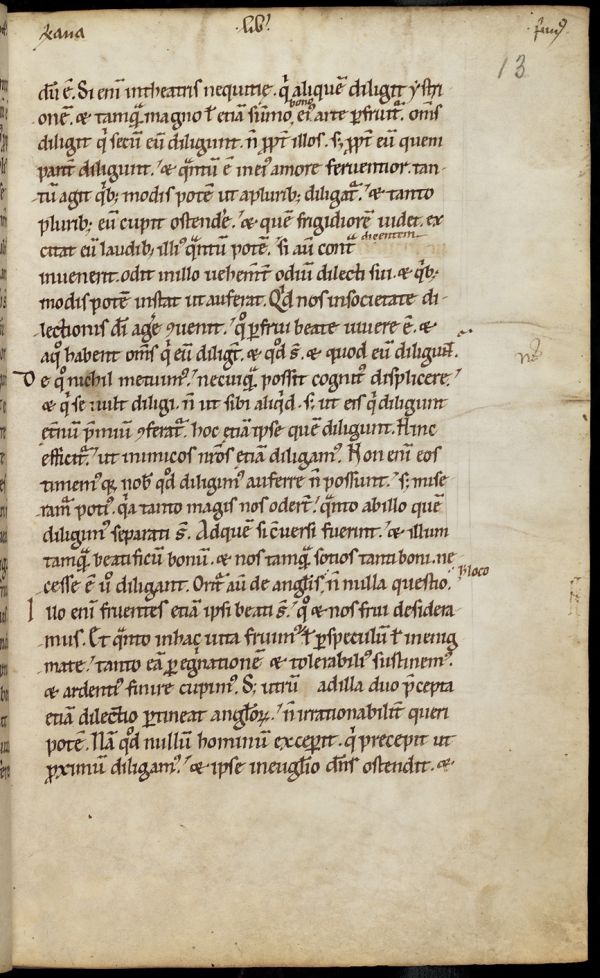 xana · lib' · prim9
13
dū ē. Si enī intheatris nequitie. q̇ aliquē diligit ẏstri
onē. & tamq̄ magno ł etiā sūmo, bono ei9 arte ꝑfruit᷑. om̄s
diligit q̇ secū eū diligunt. n̄ ꝓpt̄ illos. s; ꝓpt̄ eū quem
parit̄ diligunt. & q̄ntū ē inei9 amore feruentior. tan
tū agit q̇b; modis potē ut aplurib; diligat᷑. & tanto
plurib; eū cupit ostende̅. & quē frigidiorē uidet. ex
citat eū laudib; illi9 q̄ntū potē. si aū cont᷑ dicentem
inuenerit. odit inillo uehem̄t̄ odiū dilecti sui. & q̇b;
modis potē instat ut auferat. Q̇d nos insocietate di
lectionis dī age̅ ꝯuenit. q̊ ꝑfrui beate uiuere ē. &
aq̊ habent om̄s q̇ eū diligt̄. & qd̊ s̄. & quod eū diligūt.
De q̊ nichil metuim9. necuiq̄ possit cognit9 displicere.
& q̇ se uult diligi. n̄ ut sibi aliq̇d. s; ut eis q̇ diligunt
et̄nū p̄miū ꝯferat᷑. hoc etiā ipse quē diligunt. Hinc
efficit᷑. ut inimicos nr̄os etiā diligam9. Non enī eos
timem9 q; nob̄ qd̊ diligim9 auferre n̄ possunt. s; mise
ram᷑ poti9. q̇a tanto magis nos odert̄. q̄nto abillo quē
diligim9 separati s̄. Adquē si ꝯuersi fuerint. & illum
tamq̄ beatificū bonū. & nos tamq̄ sotios tanti boni. ne
cesse ē ů diligant. Orit᷑ aū de angl̄is, n̄ nulla questio. hloco
Illo enī fruentes etiā ipsi beati s̄. q̊ & nos frui desidera
mus. Et q̄nto inhac uita fruim9 ł ꝑspeculū ł inenig
mate. tanto eā ꝑegrinationē & tolerabili9 sustinem9.
& ardenti9 finire cupim9. S; utrū adilla duo p̄cepta
etiā dilectio ꝑtineat angl̄oꝝ. n̄ irrationabilit̄ queri
potē. Nā qd̊ nullū hominū exceperit. q̇ precepit ut
ꝓximū diligam9. & ipse ineuḡlio dn̄s ostendit. &